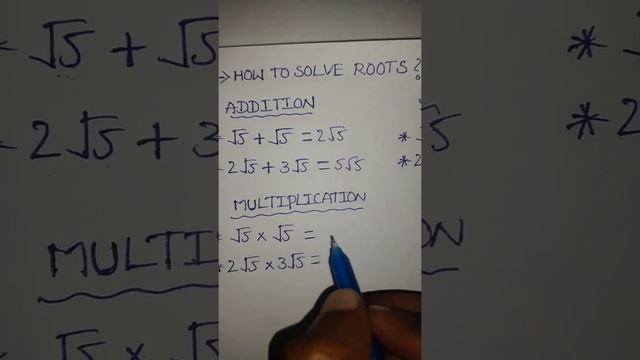 → HOW TO SOLVE ROOTS?
ADDITION
√5 + √5 = 2√5
2√5 + 3√5 = 5√5
MULTIPLICATION
√5 × √5 =
2√5 × 3√5 =